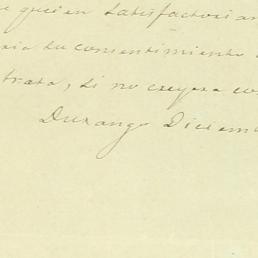 e quien satisfactori an
ria tu consentimiento
trata, si no creyera co
Durango Diciem